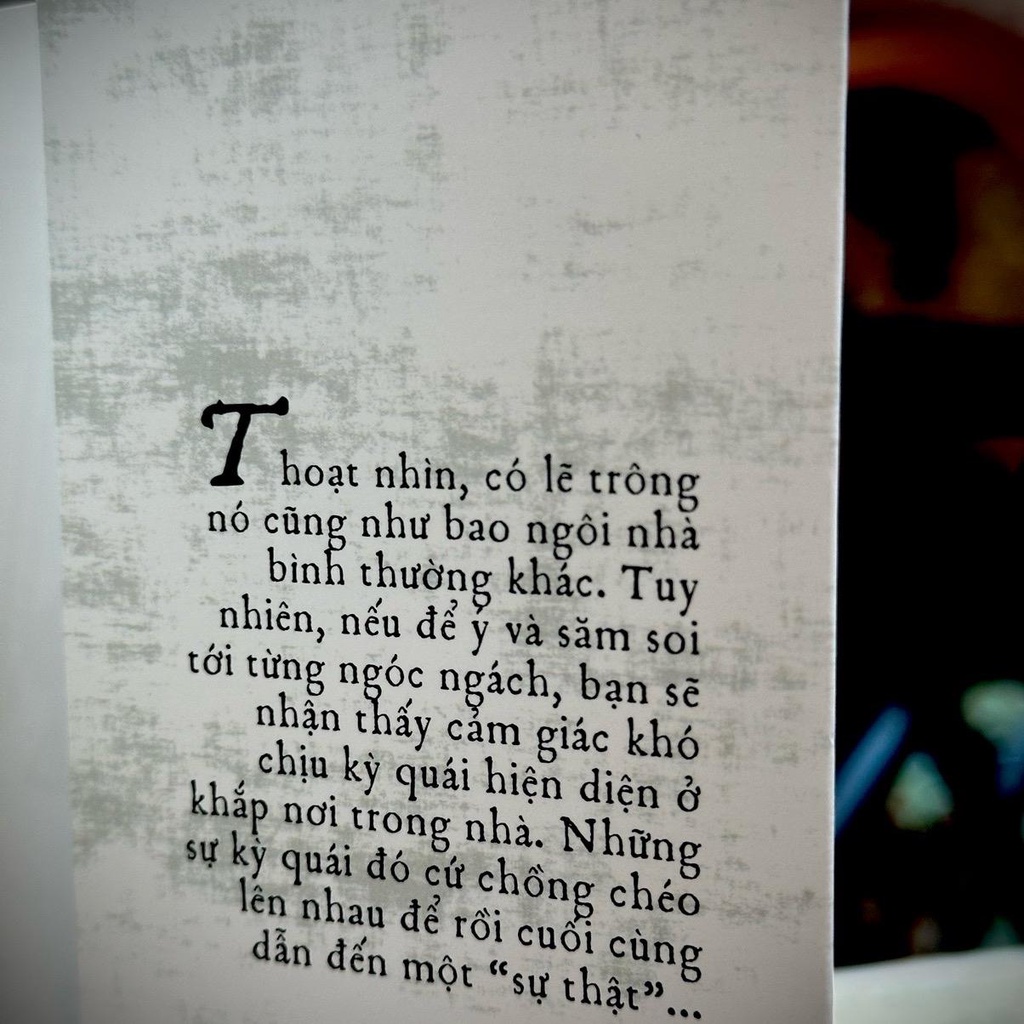 Thoạt nhìn, có lẽ trông
nó cũng như bao ngôi nhà
bình thường khác. Tuy
nhiên, nếu để ý và săm soi
tới từng ngóc ngách, bạn sẽ
nhận thấy cảm giác khó
chịu kỳ quái hiện diện ở
khắp nơi trong nhà. Những
sự kỳ quái đó cứ chồng chéo
lên nhau để rồi cuối cùng
dẫn đến một “sự thật”...